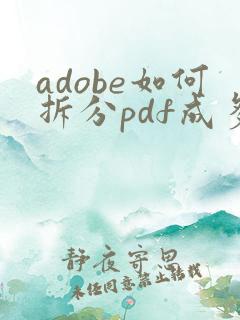 adobe如何
拆分pdf成多
静夜寄思
未经同意禁止转载